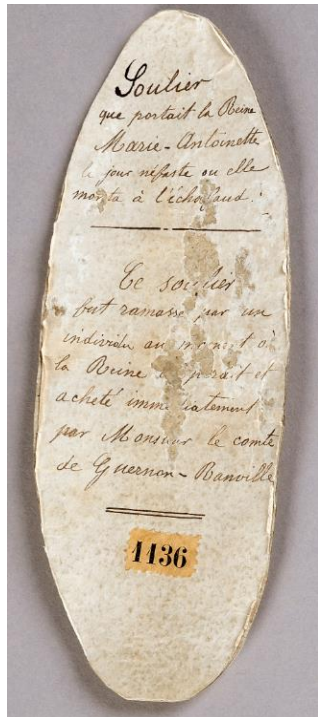 Soulier
que portait la Reine
Marie-Antoinette
le jour néfaste ou elle
monta à l'échafaud.
Ce soulier
fut ramassé par un
individu au moment où
la Reine et
acheté immédiatement
par Monsieur le comte
de Guernon-Ranville
1136